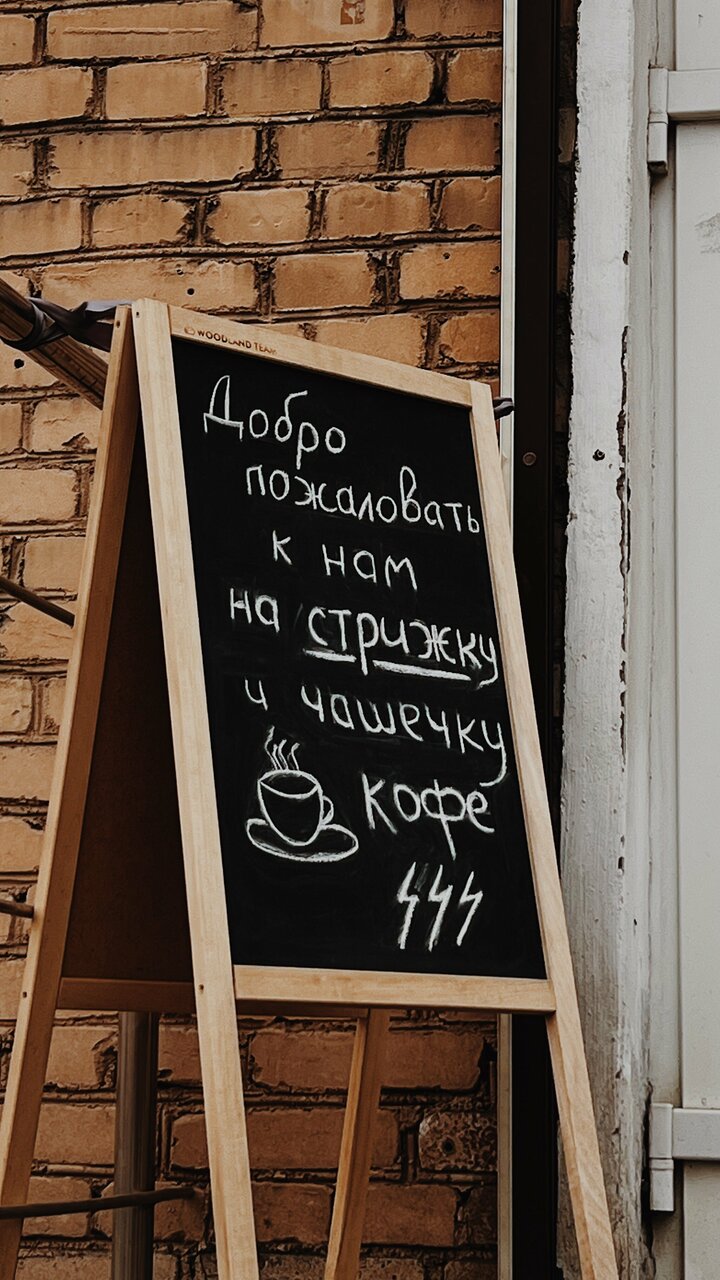 WOODLAND TEAM
Добро
пожаловать
к нам
на стрижку
и чашечку
кофе